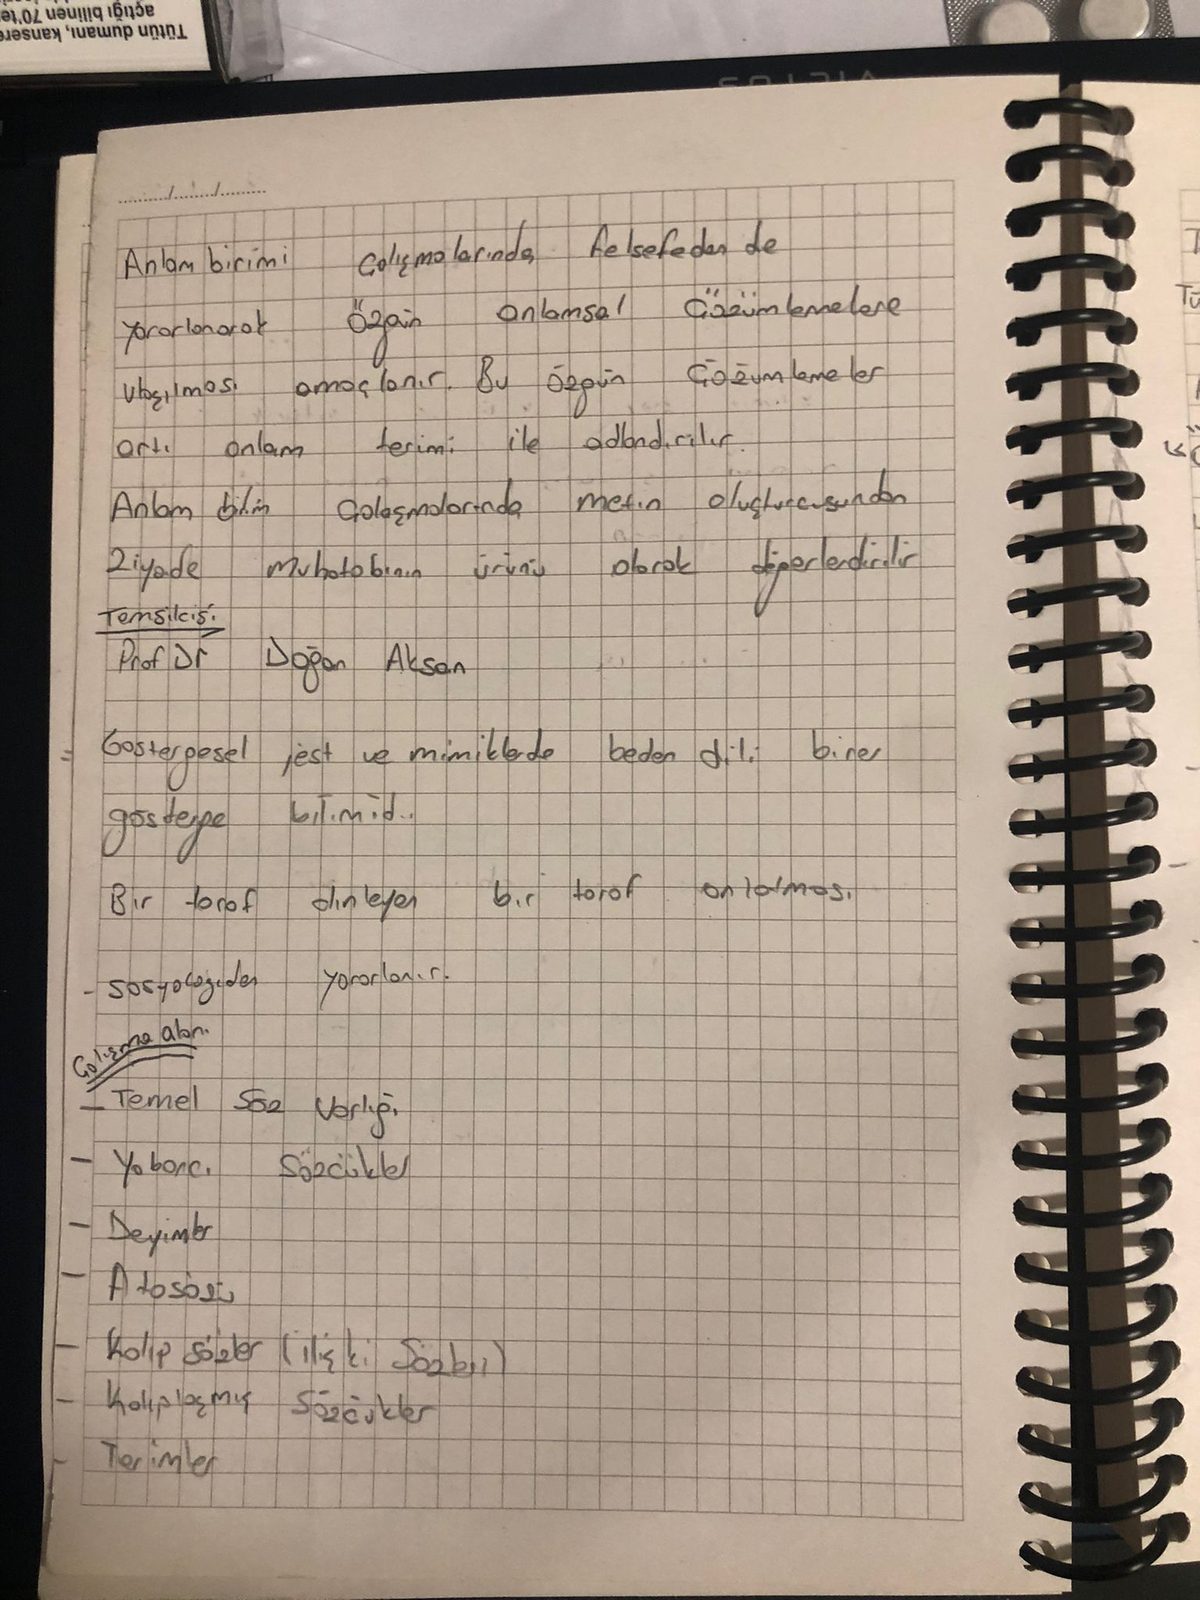 Tütün dumanı, kansere
açtığı bilinen 70'ten
....../....../......
Anlam birimi çalışmalarında felsefeden de
yararlanarak özgün anlamsal çözümlemelere
ulaşılması amaçlanır. Bu özgün çözümlemeler
artı anlam terimi ile adlandırılır.
Anlam bilim çalışmalarında metin oluşturucusundan
Ziyade muhatabının ürünü olarak değerlendirilir
Temsilcisi
Prof Dr Doğan Aksan
= Göstergesel jest ve mimiklerde beden dili birer
gösterge bilimid..
Bir taraf dinleyen bir taraf anlatması
- sosyolojiden yararlanır.
Çalışma alanı
- Temel Söz Varlığı
- Yabancı Sözcükler
- Deyimler
- Atasözü
- Kalıp sözler (ilişki Sözleri)
- Kalıplaşmış Sözcükler
- Terimler